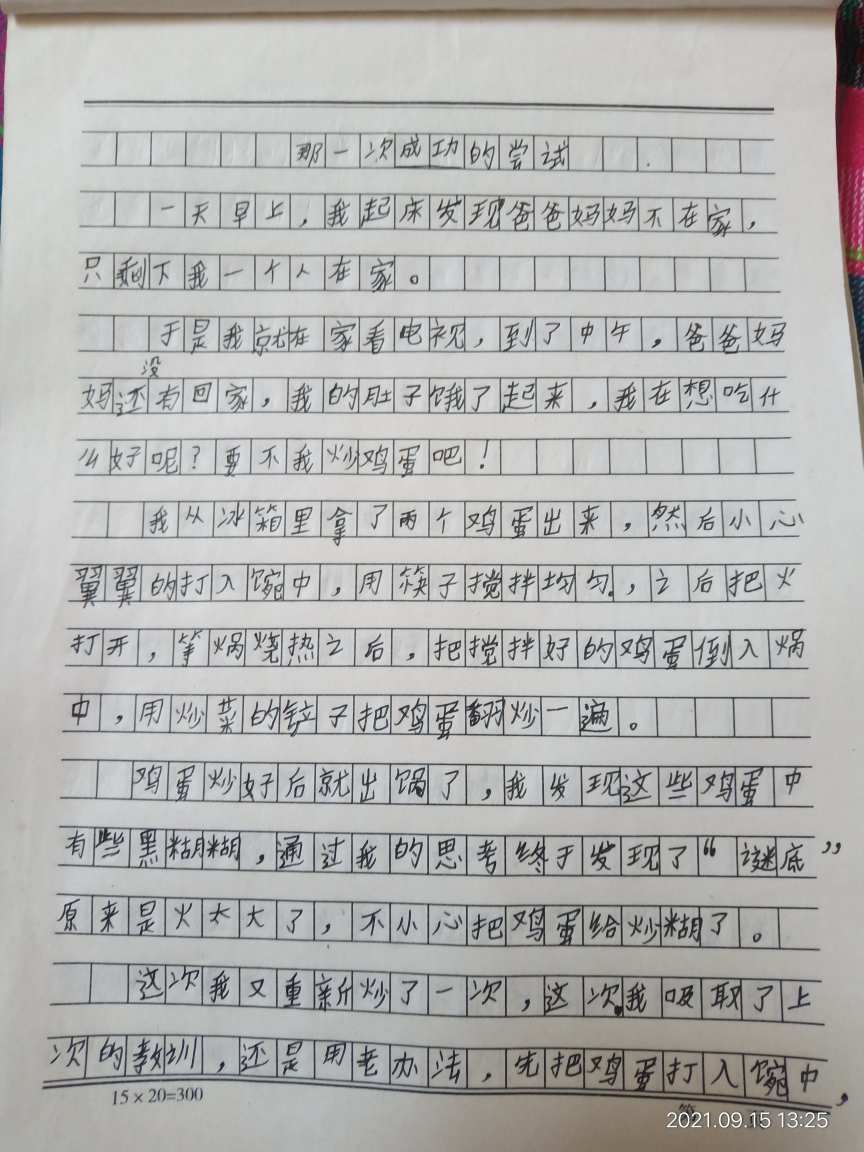 那一次成功的尝试
一天早上，我起床发现爸爸妈妈不在家，
只剩下我一个人在家。
于是我就在家看电视，到了中午，爸爸妈
妈还没有回家，我的肚子饿了起来，我在想吃什
么好呢？要不我炒鸡蛋吧！
我从冰箱里拿了两个鸡蛋出来，然后小心
翼翼的打入碗中，用筷子搅拌均匀，之后把火
打开，等锅烧热之后，把搅拌好的鸡蛋倒入锅
中，用炒菜的铲子把鸡蛋翻炒一遍。
鸡蛋炒好后就出锅了，我发现这些鸡蛋中
有些黑糊糊，通过我的思考终于发现了“谜底”
原来是火太大了，不小心把鸡蛋给炒糊了。
这次我又重新炒了一次，这次我吸取了上
次的教训，还是用老办法，先把鸡蛋打入碗中，
15×20=300
2021.09.15 13:25